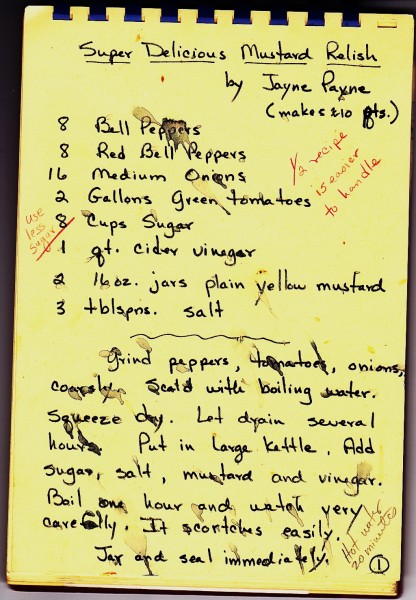 Super Delicious Mustard Relish
by Jayne Payne
(makes ±10 pts.)
8 Bell Peppers
8 Red Bell Peppers
16 Medium Onions
2 Gallons Green tomatoes
8 Cups Sugar
1 qt. cider vinegar
2 16 oz. jars plain yellow mustard
3 tblspns. salt
1/2 recipe
is easier
to handle
use
less
sugar
Grind peppers, tomatoes, onions,
coarsly. Scald with boiling water.
Squeeze dry. Let drain several
hours. Put in large kettle. Add
sugar, salt, mustard and vinegar.
Boil one hour and watch very
carefully. It scortches easily.
Jar and seal immediately.
Hot water
20 minutes
1